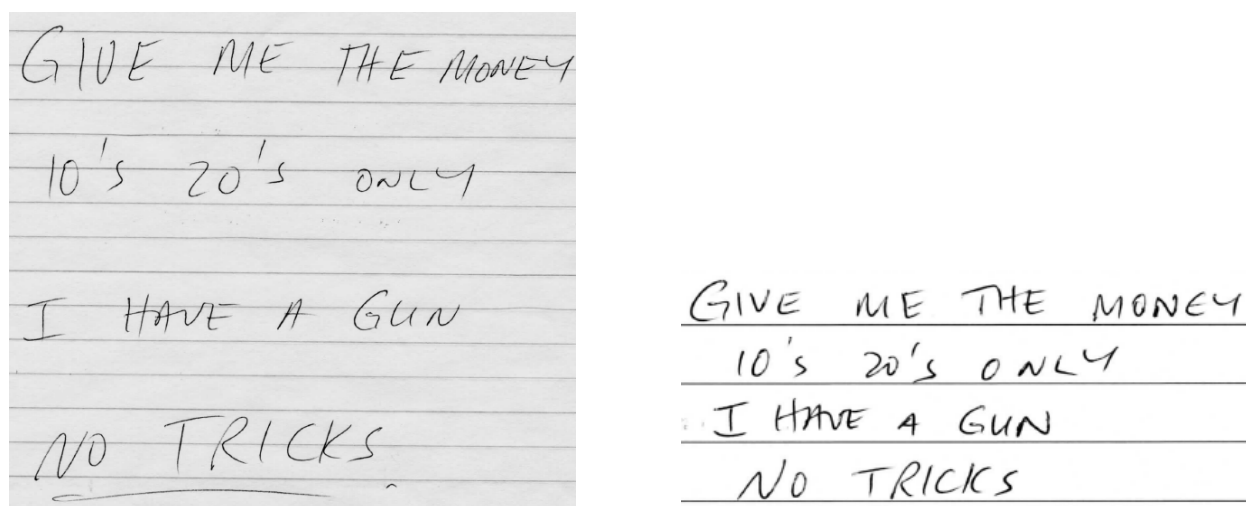 GIVE ME THE MONEY
10's 20's ONLY
I HAVE A GUN
NO TRICKS.
GIVE ME THE MONEY
10's 20's ONLY
I HAVE A GUN
NO TRICKS